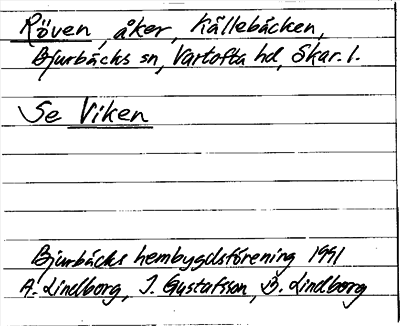 Röven, åker, Källebäcken,
Bjurbäcks sn, Vartofta hd, Skar. l.
Se Viken
Bjurbäcks hembygdsförening 1991
A. Lindborg, I. Gustafsson, B. Lindborg